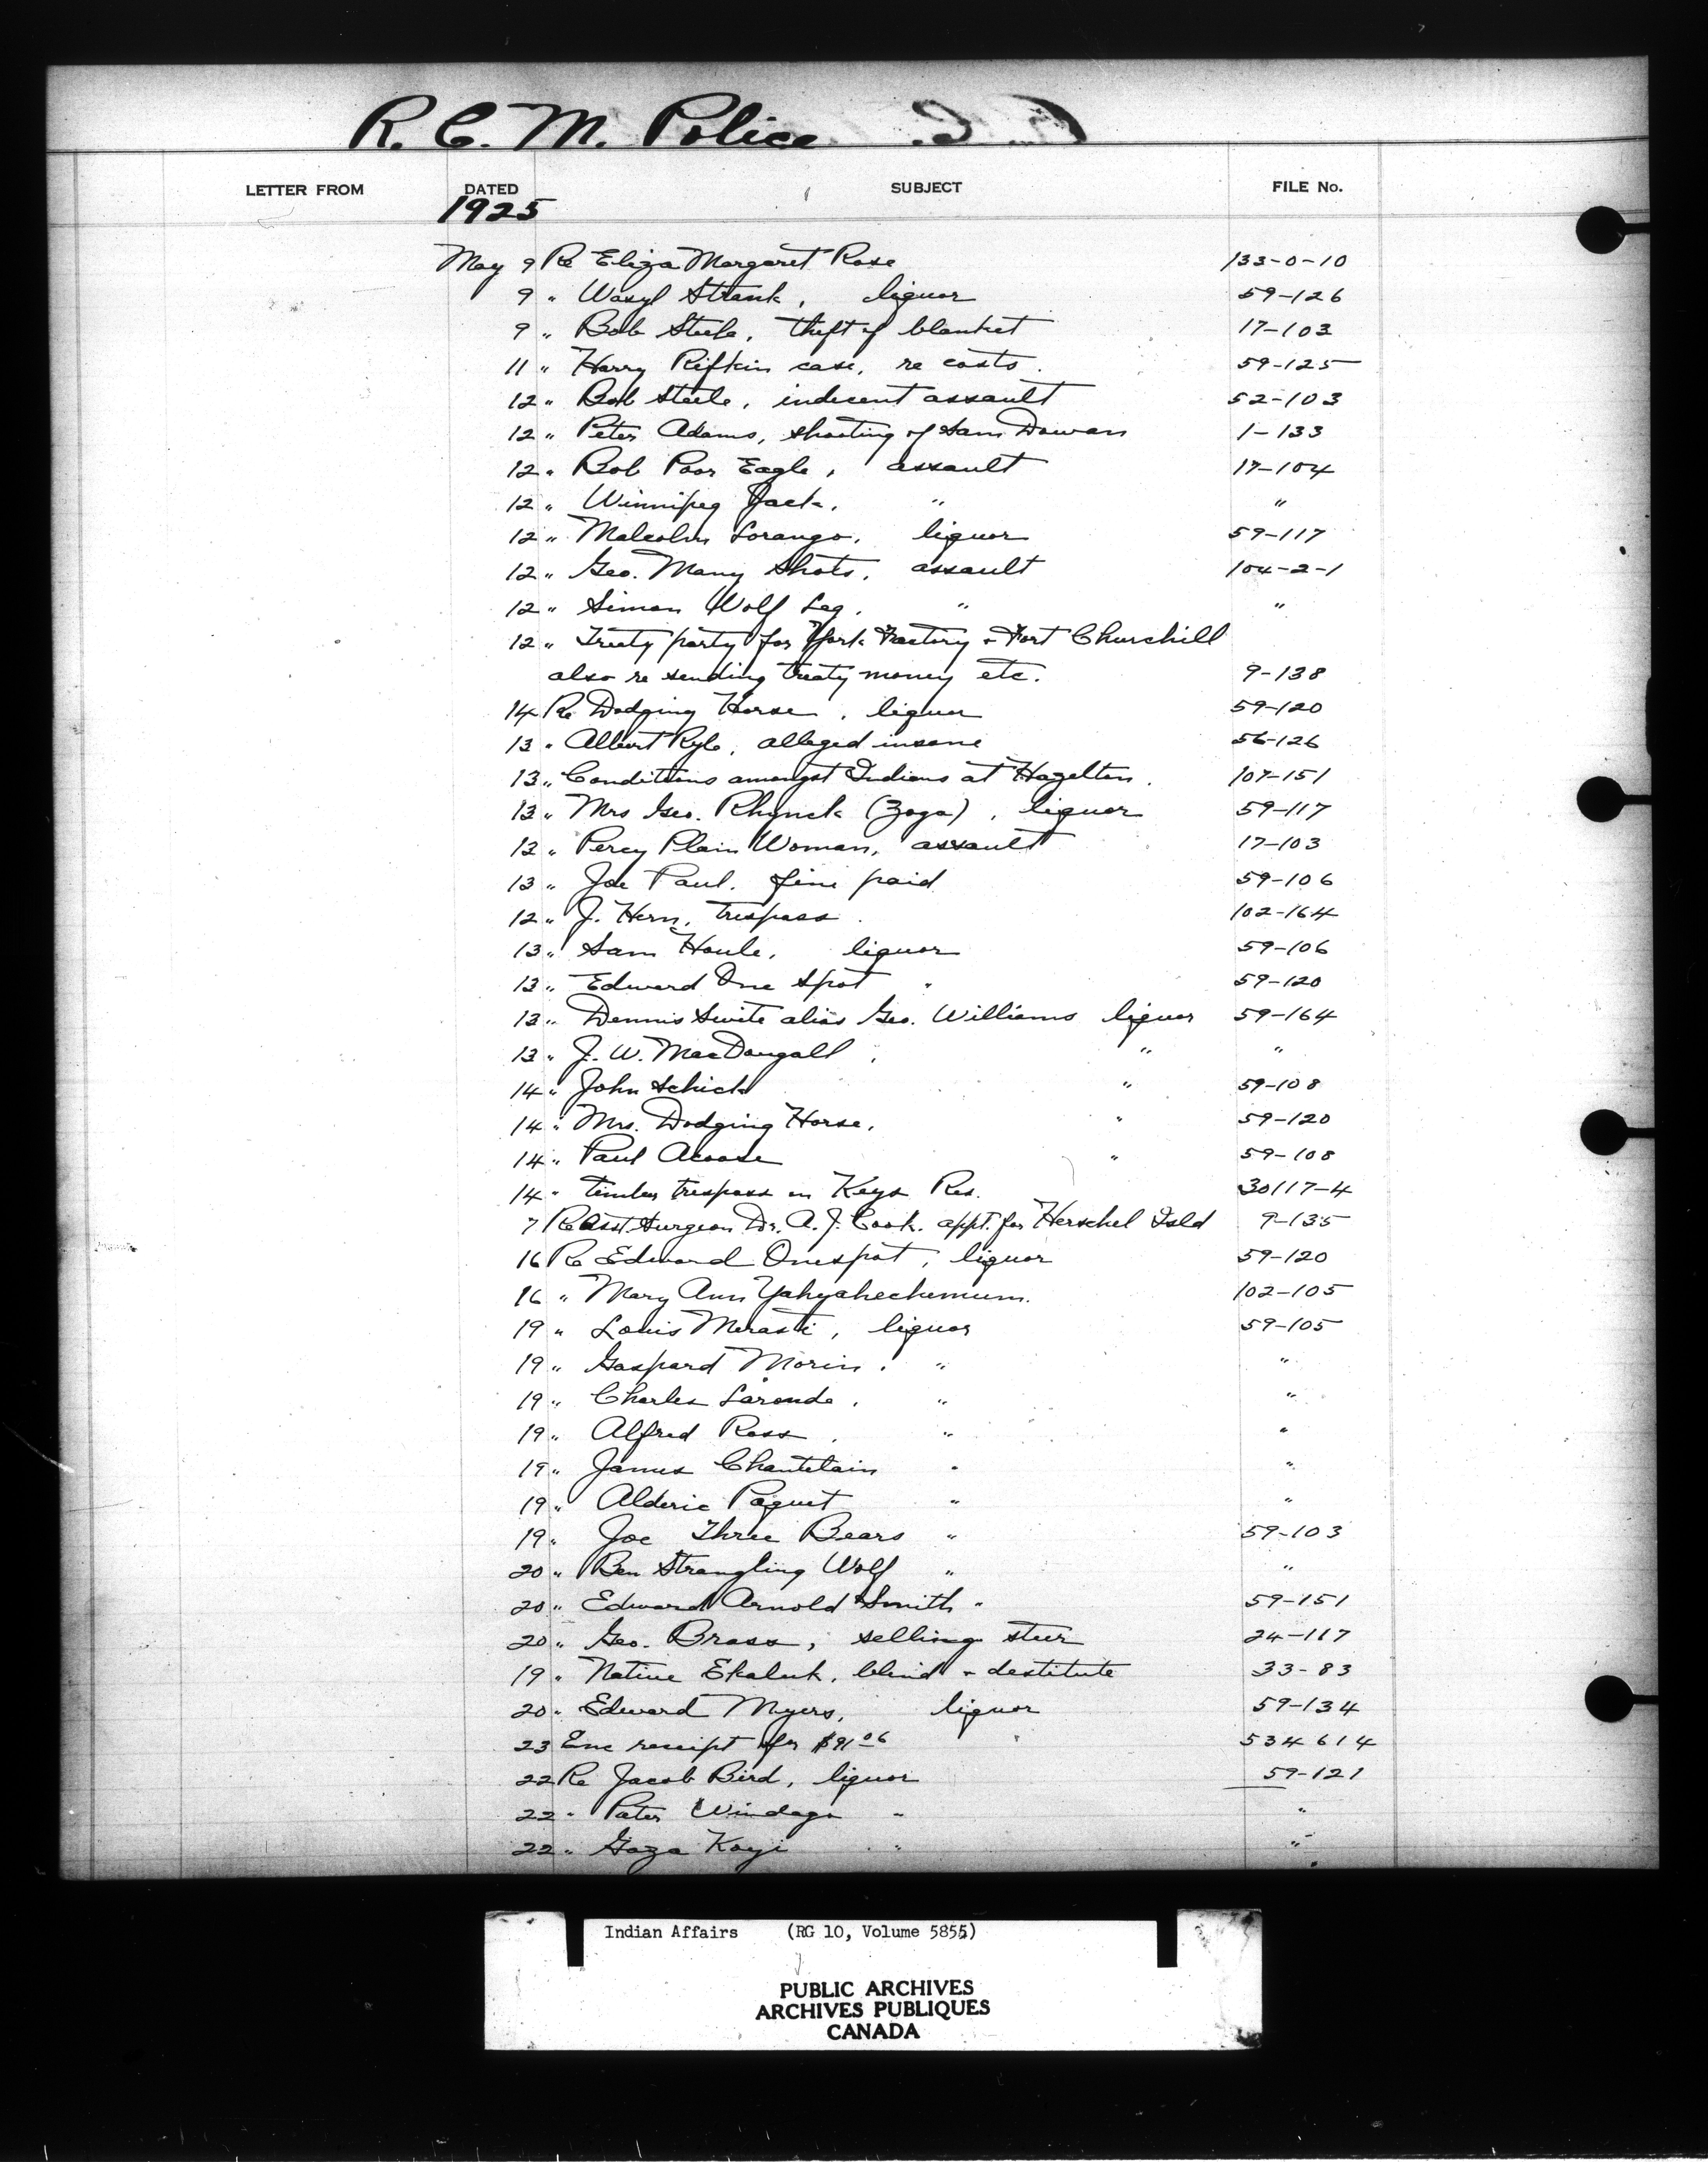 R. C. M. Police
LETTER FROM DATED SUBJECT FILE No.
1925
May 9 Re Eliza Margaret Rose 133-0-10
9 " Wasyl Strank, liquor 59-126
9 " Bob Steele, theft of blanket 17-103
11 " Harry Rifkin case, re costs. 59-125
12 " Bob Steele, indecent assault 52-103
12 " Peter Adams, shooting of Sam Dowan 1-133
12 " Bob Poor Eagle, assault 17-104
12 " Winnipeg Jack, " "
12 " Malcolm Lorango, liquor 59-117
12 " Geo. Many Shots, assault 104-2-1
12 " Simon Wolf Leg, " "
12 " Treaty party for York Factory & Fort Churchill
also re sending treaty money etc. 9-138
14 Re Dodging Horse, liquor 59-120
13 " Albert Kyle, alleged insane 56-126
13 " Conditions amongst Indians at Hazelton. 107-151
13 " Mrs Geo. Rhynck (Zoga), liquor 59-117
12 " Percy Plain Woman, assault 17-103
13 " Joe Paul, fine paid 59-106
12 " J. Hern, trespass 102-164
13 " Sam Houle, liquor 59-106
13 " Edward One Spot " 59-120
13 " Dennis Swite alias Geo. Williams liquor 59-164
13 " J. W. MacDougall, " "
14 " John Schick " 59-108
14 " Mrs. Dodging Horse, " 59-120
14 " Paul Acoose " 59-108
14 " Timber trespass on Keys Res. 30117-4
7 Re Asst. Surgeon Dr. A. J. Cook. appt. for Herschel Isld 9-135
16 Re Edward Onespot, liquor 59-120
16 " Mary Ann Yahyahechemum. 102-105
19 " Louis Merasti, liquor 59-105
19 " Gaspard Morin, " "
19 " Charles Laronde, " "
19 " Alfred Ross, " "
19 " James Chantelain " "
19 " Alderic Paquet " "
19 " Joe Three Bears " 59-103
20 " Ben Strangling Wolf " "
20 " Edward Arnold Smith " 59-151
20 " Geo. Brass, selling steer 24-117
19 " Native Ekaluk, blind & destitute 33-83
20 " Edward Myers, liquor 59-134
23 Enc receipt for $91.06 534614
22 Re Jacob Bird, liquor 59-121
22 " Peter Windago " "
22 " Gaza Kayi " "
Indian Affairs (RG 10, Volume 5855)
PUBLIC ARCHIVES
ARCHIVES PUBLIQUES
CANADA